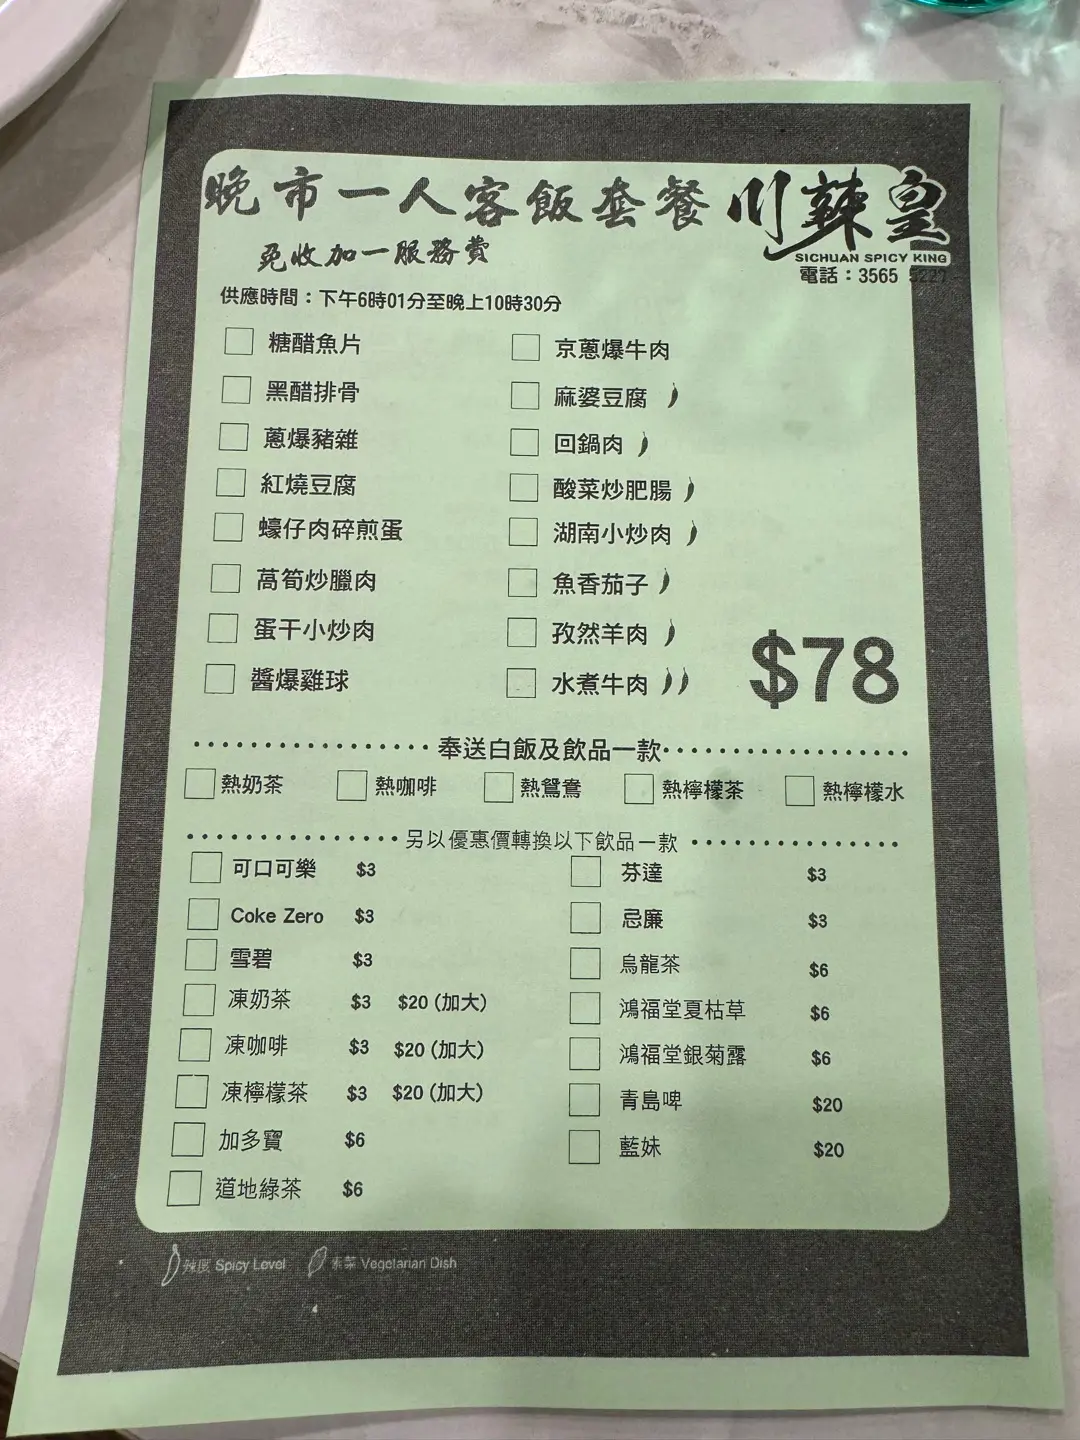 晚市一人客飯套餐 川辣皇
免收加一服務費 SICHUAN SPICY KING
電話：3565 5227
供應時間：下午6時01分至晚上10時30分
糖醋魚片 京蔥爆牛肉
黑醋排骨 麻婆豆腐
蔥爆豬雜 回鍋肉
紅燒豆腐 酸菜炒肥腸
蠔仔肉碎煎蛋 湖南小炒肉
萵筍炒臘肉 魚香茄子
蛋干小炒肉 孜然羊肉
醬爆雞球 水煮牛肉
$78
奉送白飯及飲品一款
熱奶茶 熱咖啡 熱鴛鴦 熱檸檬茶 熱檸檬水
另以優惠價轉換以下飲品一款
可口可樂 $3 芬達 $3
Coke Zero $3 忌廉 $3
雪碧 $3 烏龍茶 $6
凍奶茶 $3 $20 (加大) 鴻福堂夏枯草 $6
凍咖啡 $3 $20 (加大) 鴻福堂銀菊露 $6
凍檸檬茶 $3 $20 (加大) 青島啤 $20
加多寶 $6 藍妹 $20
道地綠茶 $6
辣度 Spicy Level 素菜 Vegetarian Dish